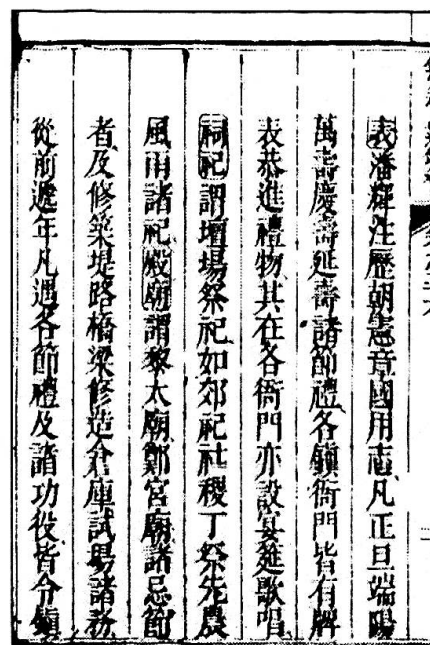 表潘輝注歷朝憲章國用志凡正旦端陽
萬壽慶壽延壽諸節禮各鎭衙門皆有牌
表恭進禮物其在各衙門亦設宴筵歌唱
祠祀謂壇場祭祀如郊祀社稷丁祭先農
風雨諸祀殿廟謂黎太廟鄭宮廟諸忌節
者及修築堤路橋梁修造倉庫試場諸務
從前遞年凡遇各節禮及諸功役皆令鎭